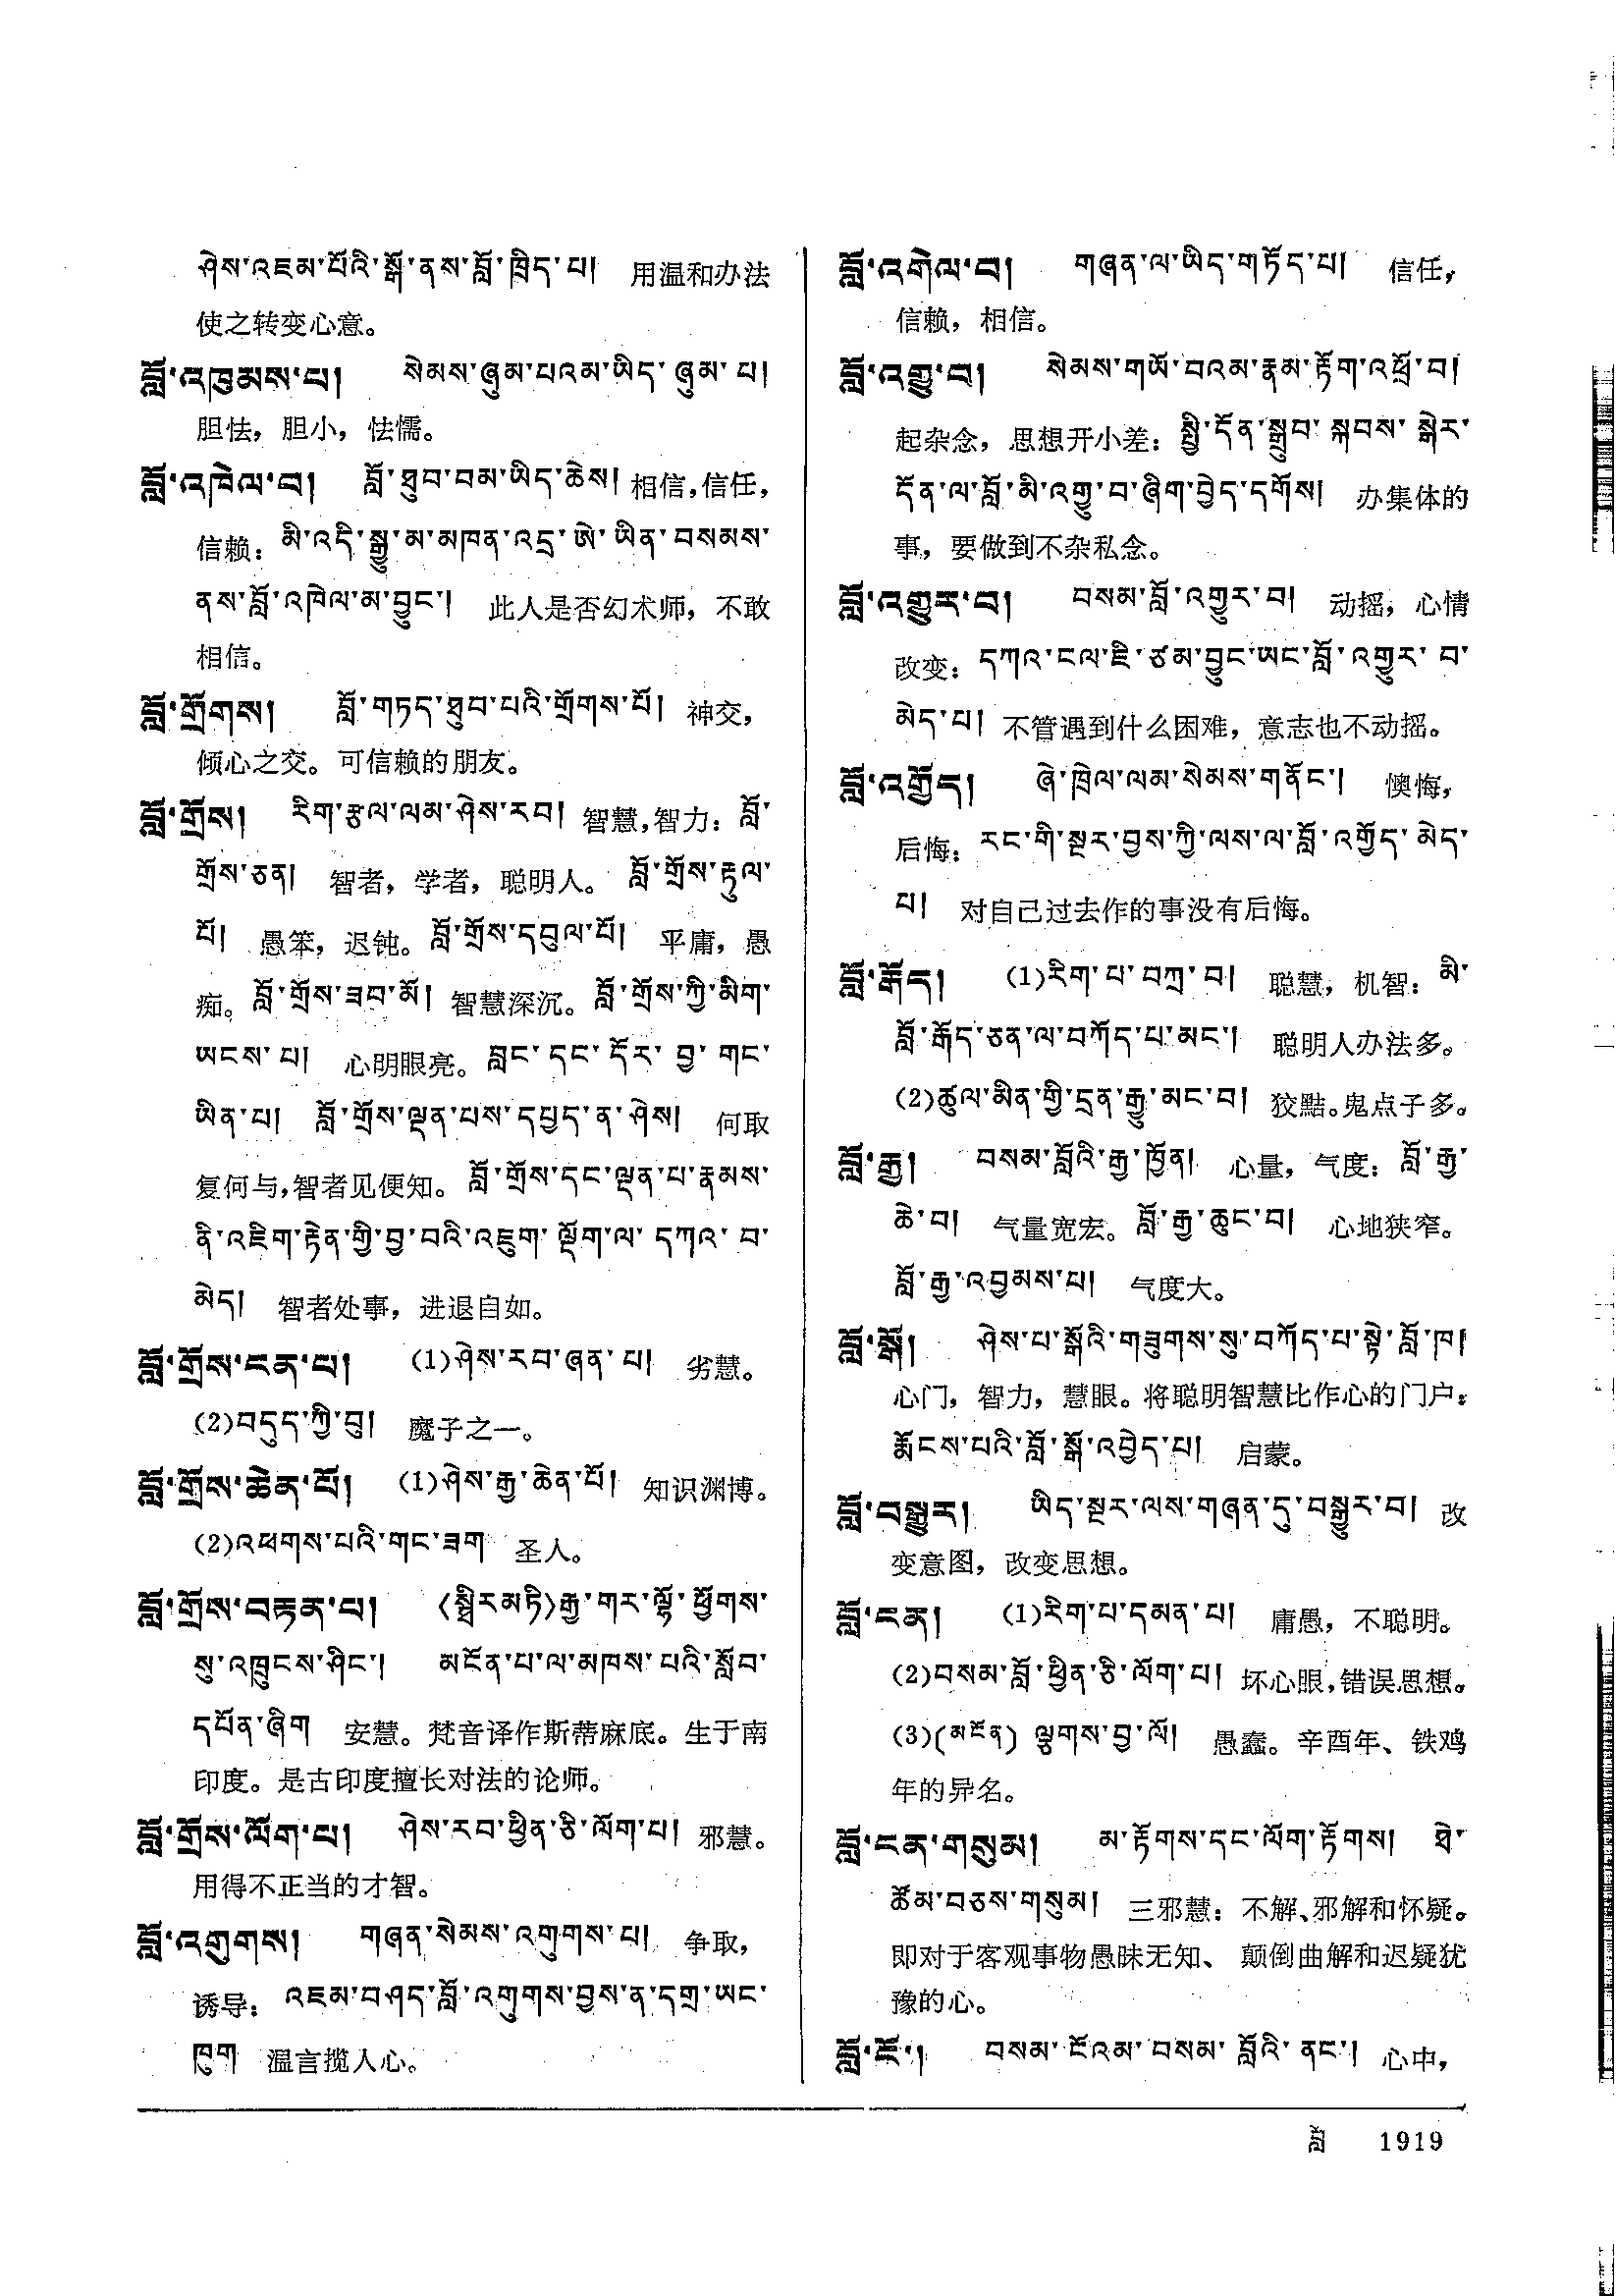 ཤེས་འཇམ་པོའི་སྒོ་ནས་བློ་ཁྲིད་པ། 用温和办法
使之转变心意。
བློ་འཁུམས་པ། སེམས་ཞུམ་པའམ་ཡིད་ཞུམ་པ།
胆怯，胆小，怯懦。
བློ་འཁེལ་བ། བློ་ཐུབ་བམ་ཡིད་ཆེས། 相信,信任,
信赖：མི་འདི་སྒྱུ་མ་མཁན་འདྲ་ཨེ་ཡིན་བསམས་
ནས་བློ་འཁེལ་མ་བྱུང་། 此人是否幻术师，不敢
相信。
བློ་གྲོགས། བློ་གཏད་ཐུབ་པའི་གྲོགས་པོ། 神交，
倾心之交。可信赖的朋友。
བློ་གྲོས། རིག་རྩལ་ལམ་ཤེས་རབ། 智慧,智力：བློ་
གྲོས་ཅན། 智者，学者，聪明人。བློ་གྲོས་རྟུལ་
པོ། 愚笨，迟钝。བློ་གྲོས་དབུལ་པོ། 平庸，愚
痴。བློ་གྲོས་ཟབ་མོ། 智慧深沉。བློ་གྲོས་ཀྱི་མིག་
ཡངས་པ། 心明眼亮。བླང་དང་དོར་བྱ་གང་
ཡིན་པ། བློ་གྲོས་ལྡན་པས་དཔྱད་ན་ཤེས། 何取
复何与,智者见便知。བློ་གྲོས་དང་ལྡན་པ་རྣམས་
ནི་འཇིག་རྟེན་གྱི་བྱ་བའི་འཇུག་ལྡོག་ལ་དཀའ་བ་
མེད། 智者处事，进退自如。
བློ་གྲོས་ངན་པ། (1)ཤེས་རབ་ཞན་པ། 劣慧。
(2)བདུད་ཀྱི་བུ། 魔子之一。
བློ་གྲོས་ཆེན་པོ། (1)ཤེས་རྒྱ་ཆེན་པོ། 知识渊博。
(2)འཕགས་པའི་གང་ཟག 圣人。
བློ་གྲོས་བརྟན་པ། (སྠིརམཏི)རྒྱ་གར་ལྷོ་ཕྱོགས་
སུ་འཁྲུངས་ཤིང་། མངོན་པ་ལ་མཁས་པའི་སློབ་
དཔོན་ཞིག 安慧。梵音译作斯蒂麻底。生于南
印度。是古印度擅长对法的论师。
བློ་གྲོས་ལོག་པ། ཤེས་རབ་ཕྱིན་ཅི་ལོག་པ། 邪慧。
用得不正当的才智。
བློ་འགུགས། གཞན་སེམས་འགུགས་པ། 争取，
诱导：འཇམ་བཤད་བློ་འགུགས་བྱས་ན་དགྲ་ཡང་
ཁུག 温言揽人心。
བློ་འགེལ་བ། གཞན་ལ་ཡིད་གཏོད་པ། 信任，
信赖，相信。
བློ་འགྱུ་བ། སེམས་གཡོ་བའམ་རྣམ་རྟོག་འཕྲོ་བ།
起杂念，思想开小差：སྤྱི་དོན་སྒྲུབ་སྐབས་སྒེར་
དོན་ལ་བློ་མི་འགྱུ་བ་ཞིག་བྱེད་དགོས། 办集体的
事，要做到不杂私念。
བློ་འགྱུར་བ། བསམ་བློ་འགྱུར་བ། 动摇，心情
改变：དཀའ་ངལ་ཇི་ཙམ་བྱུང་ཡང་བློ་འགྱུར་བ་
མེད་པ། 不管遇到什么困难，意志也不动摇。
བློ་འགྱོད། ཞེ་ཁྲེལ་ལམ་སེམས་གནོང་། 懊悔，
后悔：རང་གི་སྔར་བྱས་ཀྱི་ལས་ལ་བློ་འགྱོད་མེད་
པ། 对自己过去作的事没有后悔。
བློ་རྒོད། (1)རིག་པ་བཀྲ་བ། 聪慧，机智：མི་
བློ་རྒོད་ཅན་ལ་བཀོད་པ་མང་། 聪明人办法多。
(2)ཚུལ་མིན་གྱི་དྲན་རྒྱུ་མང་བ། 狡黠。鬼点子多。
བློ་རྒྱ། བསམ་བློའི་རྒྱ་ཁྱོན། 心量，气度：བློ་རྒྱ་
ཆེ་བ། 气量宽宏。བློ་རྒྱ་ཆུང་བ། 心地狭窄。
བློ་རྒྱ་འབྱམས་པ། 气度大。
བློ་སྒོ། ཤེས་པ་སྒོའི་གཟུགས་སུ་བཀོད་པ་སྟེ་བློ་ཁ།
心门，智力，慧眼。将聪明智慧比作心的门户：
རྨོངས་པའི་བློ་སྒོ་འབྱེད་པ། 启蒙。
བློ་བསྒྱུར། ཡིད་སྔར་ལས་གཞན་དུ་བསྒྱུར་བ། 改
变意图，改变思想。
བློ་ངན། (1)རིག་པ་དམན་པ། 庸愚，不聪明。
(2)བསམ་བློ་ཕྱིན་ཅི་ལོག་པ། 坏心眼,错误思想。
(3)(མངོན) ལྕགས་བྱ་ལོ། 愚蠢。辛酉年、铁鸡
年的异名。
བློ་ངན་གསུམ། མ་རྟོགས་དང་ལོག་རྟོགས། ཐེ་
ཚོམ་བཅས་གསུམ། 三邪慧：不解、邪解和怀疑。
即对于客观事物愚昧无知、颠倒曲解和迟疑犹
豫的心。
བློ་ངོ་། བསམ་ངོའམ་བསམ་བློའི་ནང་། 心中，
བློ 1919